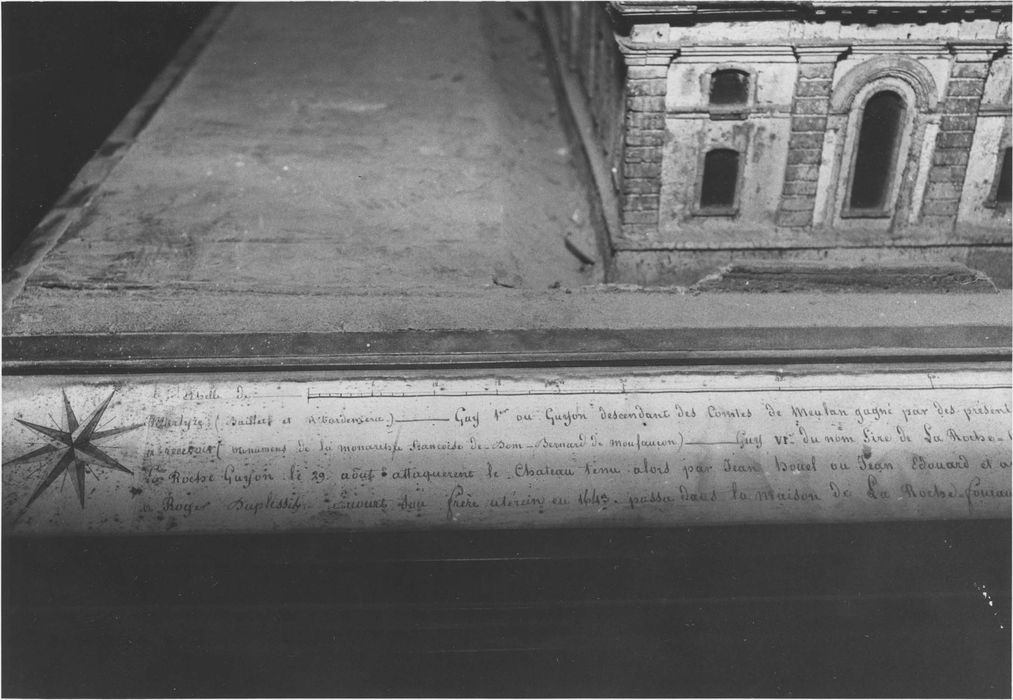 Echelle de
Martyre (Baillet et ) Guy 1er ou Guyon descendant des Comtes de Meulan gagné par des présent
(monumens de la monarchie francoise de Dom Bernard de Monfaucon) Guy VIe du nom Sire de La Roche
Roche Guyon le 29 août attaquerent le Chateau tenu alors par Jean houel ou Jean Edouard et a
Roger Duplessis son frère utérein en 1643. passa dans la maison de La Roche-foucau